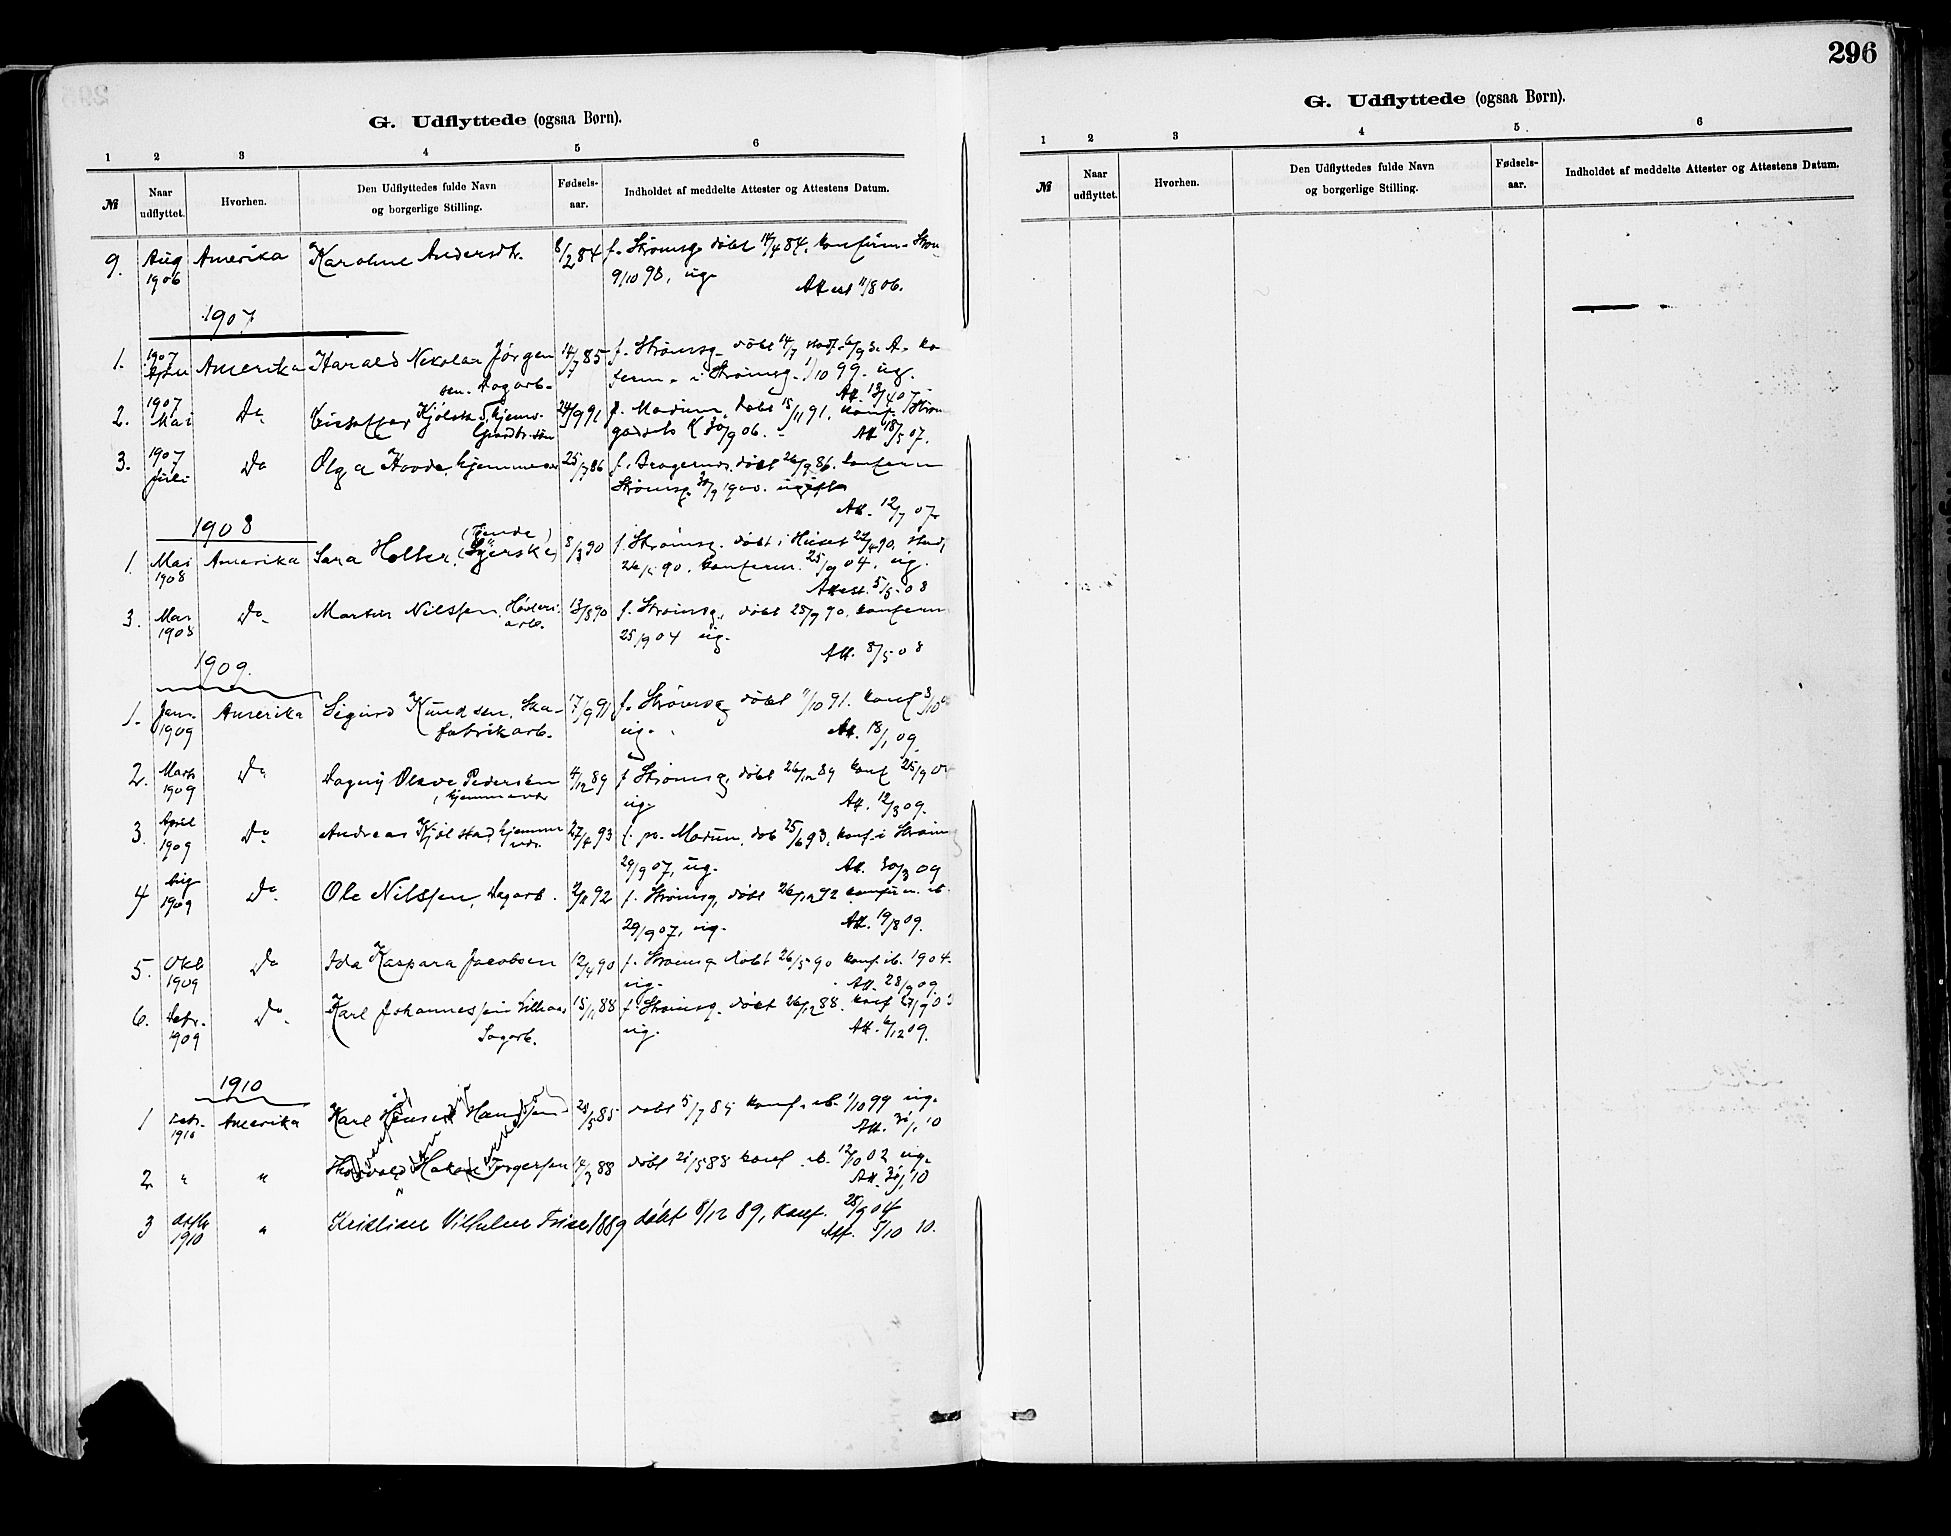 296
G. Udflyttede (ogsaa Børn).
1 2 3 4 5 6
№ Naar udflyttet. Hvorhen. Den Udflyttedes fulde Navn og borgerlige Stilling. Fødsels-aar. Indholdet af meddelte Attester og Attestens Datum.
9. Aug 1906 Amerika Karoline Andersdtr. 8/2 84 f. Strømsg. døbt 14/4 84. konfirm.
9/10 98, ug.
Attest 11/8 06.
1907
1. 1907 Amerika Harald Nikolai Jørgen 14/7 85 f. Strømsg. døbt
sen. Dagarb. i Strømsg. 1/10 99. ug.
2. 1907 Mai Do 24/9 91 f. Modum, døbt 15/11 91. konf.
30/9 06. Att 18/5 07.
3. 1907 Juli Do Olga hjemmev 25/7 86 f. Bragernes. døbt 26/9 86. konfirm
Strømsg. 30/9 1900.
Att. 12/7 07.
1908
(Tjende)
1. Mai 1908 Amerika Sara Holter. (Syerske) 8/3 90 f. Strømsg. døbt i Huset
90. konfirm. 25/9 04. ug.
Attest. 5/5 08
3. Mai 1908 Do Martin Nilssen. Høvleri arb. 13/8 90 f. Strømsg. døbt 28/9 90. konfirm
25/9 04 ug.
Att. 8/5 08
1909.
1. Jan. 1909 Amerika Sigurd Knudsen. Sko- 17/9 91 f. Strømsg døbt 11/10 91. konf
fabrikarb. ug. Att. 18/1 09.
2. Marts 1909 Do Dagny Olava Pedersen 4/12 89 f Strømsg, døbt 26/12 89 konf 25/9 04
hjemmevær ug. Att. 12/3 09.
3. April 1909 Do Andreas Kjølstad hjemme 27/4 93 f. Modum. døb 25/6 93. konf. i Strøms
29/9 07, ug. Att. 30/3 09
4 Aug 1909 Do Ole Nilssen, Dagarb. 92 f. Strømsg, døbt 26/12 92 konfirm. ib.
29/9 07, ug. Att. 19/8 09.
5. Okt 1909 Do Ida Kaspara Jacobsen 12/4 90 f. Strømsg døbt 26/5 90 konf. ib. 1904.
ug. Att. 28/9 09.
6. 1909 Do Karl Johannessen 15/11 88 f. Strømsg. døbt 26/12 88. konf 27/9 03
Sagarb. ug. Att. 6/12 09.
1910
1 Febr. 1910 Amerika Karl Hanssen 28/5 85 døbt 5/7 85 konf. ib. 1/10 99 ug.
Att. 31/1 10
2 " " Torgersen 14/3 88 døbt 21/5 88 konf. ib. 12/10 02 ug.
Att. 31/1 10
3 1910 " Kristian Vilhelm 1889 døbt 8/12 89, konf. 28/9 04
Att. 5/10 10.
G. Udflyttede (ogsaa Børn).
1 2 3 4 5. 6
№ Naar udflyttet. Hvorhen. Den Udflyttedes fulde Navn og borgerlige Stilling. Fødsels-aar. Indholdet af meddelte Attester og Attestens Datum.